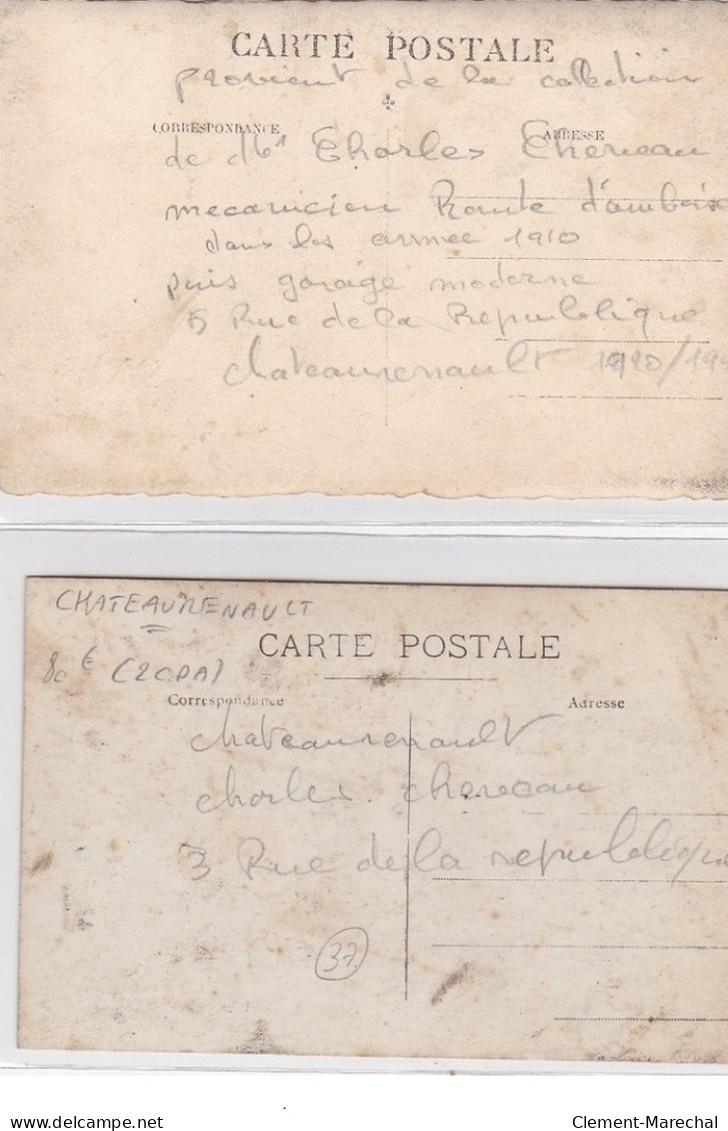 CARTE POSTALE
provient de la collection
CORRESPONDANCE
ADRESSE
de Mr Charles Chereau
mecanicien Route d'amboise
dans les armee 1910
puis garage moderne
5 Rue de la Republique
chateaurenault 1920/19
CHATEAURENAULT
CARTE POSTALE
80€ (2CPA)
Correspondance
Adresse
chateaurenault
charles chereau
3 Rue de la republique
37
delcampe.net
Clement-Marechal